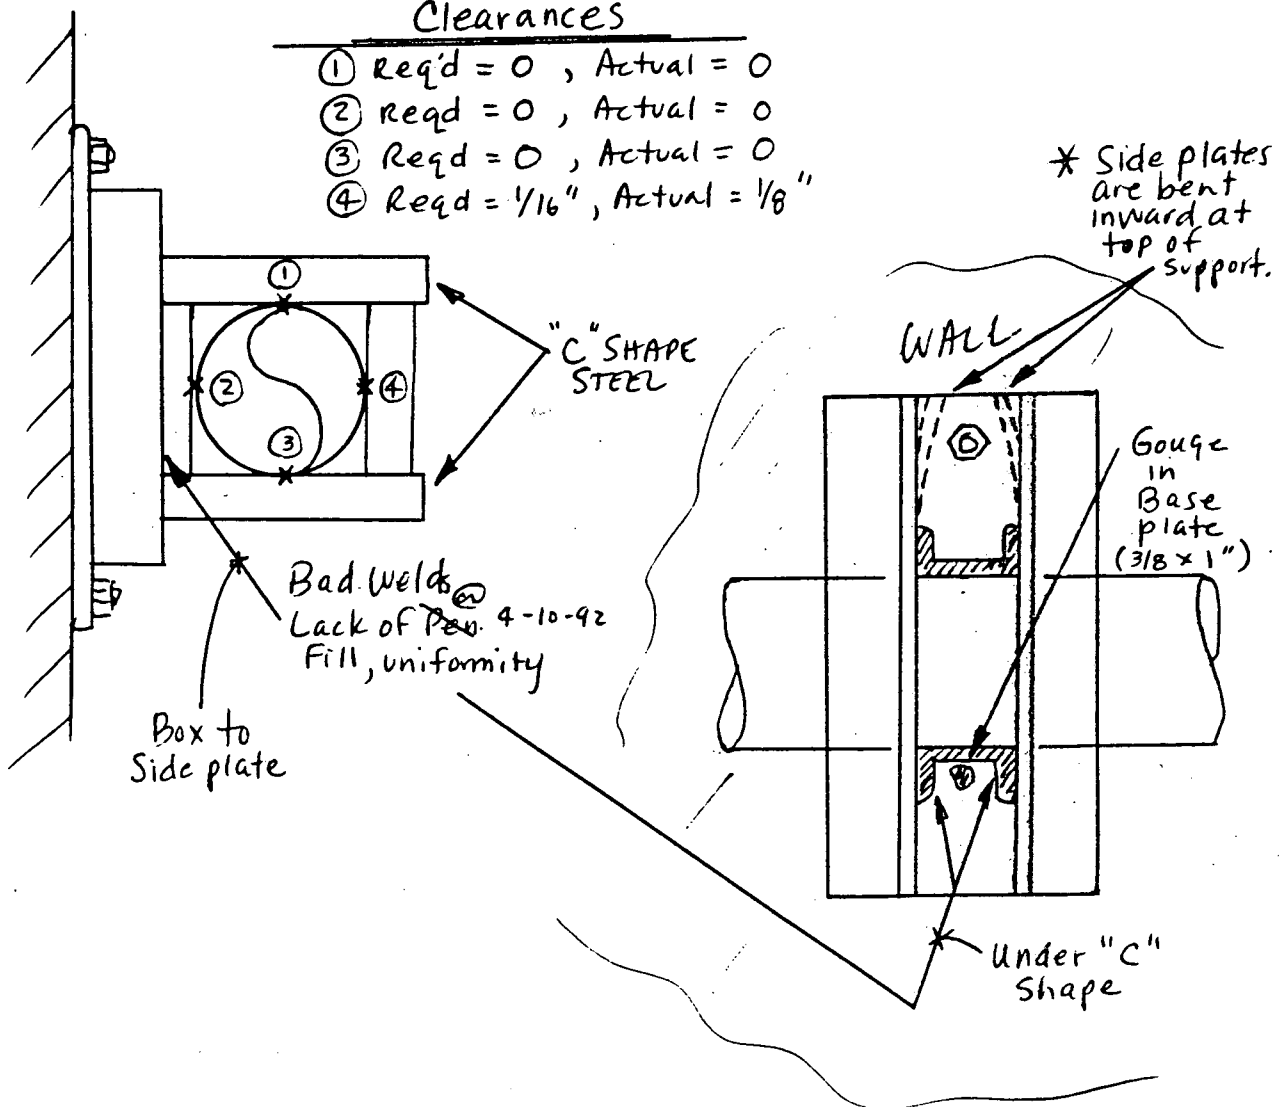 Clearances
① Req'd = 0 , Actual = 0
② Reqd = 0 , Actual = 0
③ Reqd = 0 , Actual = 0
④ Reqd = 1/16" , Actual = 1/8"
* Side plates
are bent
inward at
top of
support.
①
②
③
④
"C" SHAPE
STEEL
WALL
Gouge
in
Base
plate
(3/8 x 1")
Bad Welds
Lack of Pen. 4-10-92
Fill, uniformity
Box to
Side plate
Under "C"
Shape